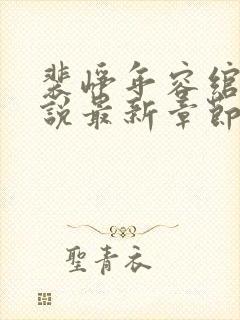 裴惇年容绾
説最新章節
聖青衣